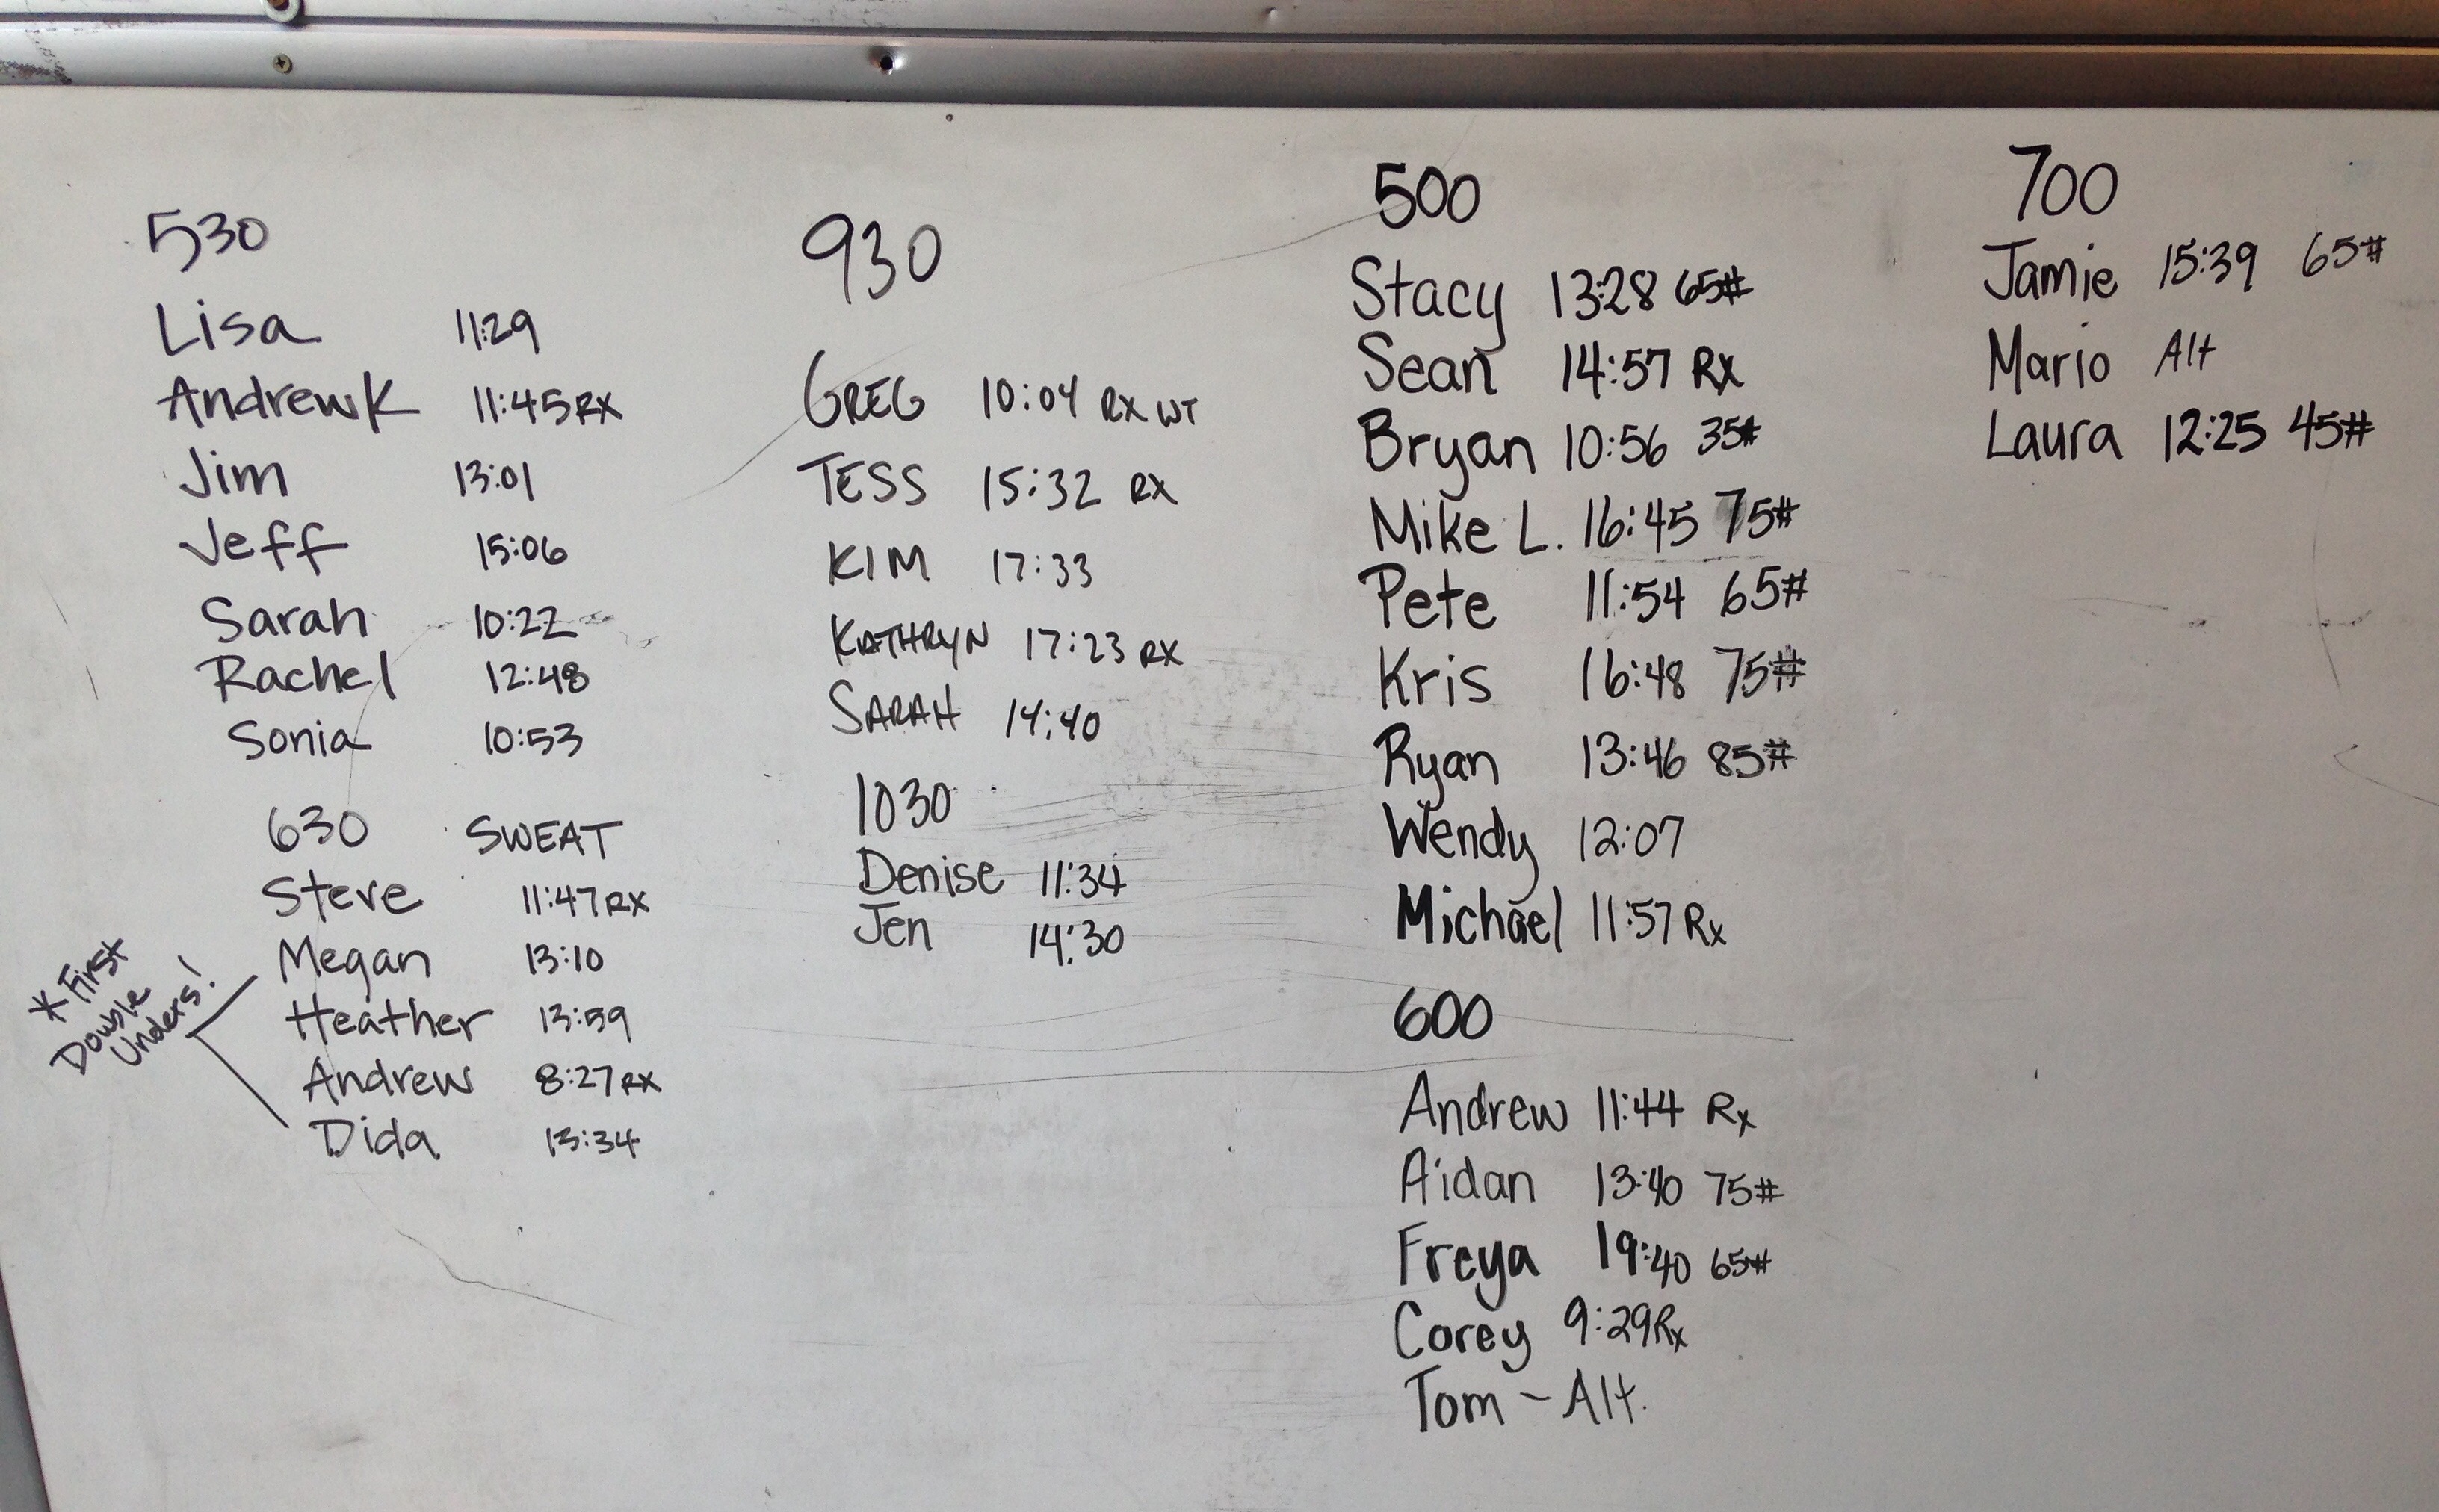 530
Lisa 11:29
Andrew K 11:45 RX
Jim 13:01
Jeff 15:06
Sarah 10:22
Rachel 12:48
Sonia 10:53
630 SWEAT
Steve 11:47 RX
Megan 13:10
Heather 13:59
Andrew 8:27 RX
Dida 13:34
* First
Double
Unders!
930
GREG 10:04 RX WT
TESS 15:32 RX
KIM 17:33
KATHRYN 17:23 RX
SARAH 14:40
1030
Denise 11:34
Jen 14:30
500
Stacy 13:28 65#
Sean 14:57 Rx
Bryan 10:56 35#
Mike L. 16:45 75#
Pete 11:54 65#
Kris 16:48 75#
Ryan 13:46 85#
Wendy 12:07
Michael 11:57 Rx
600
Andrew 11:44 Rx
Aidan 13:40 75#
Freya 19:40 65#
Corey 9:29 Rx
Tom - Alt.
700
Jamie 15:39 65#
Mario Alt
Laura 12:25 45#